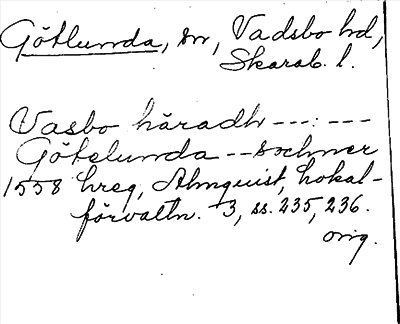 Götlunda, sn, Vadsbo hd,
Skarab. l.
Vasbo häradh ---:---
Götelunda -- sochner
1558 hreg, Almquist, Lokal-
förvaltn. 3, ss. 235, 236.
orig.